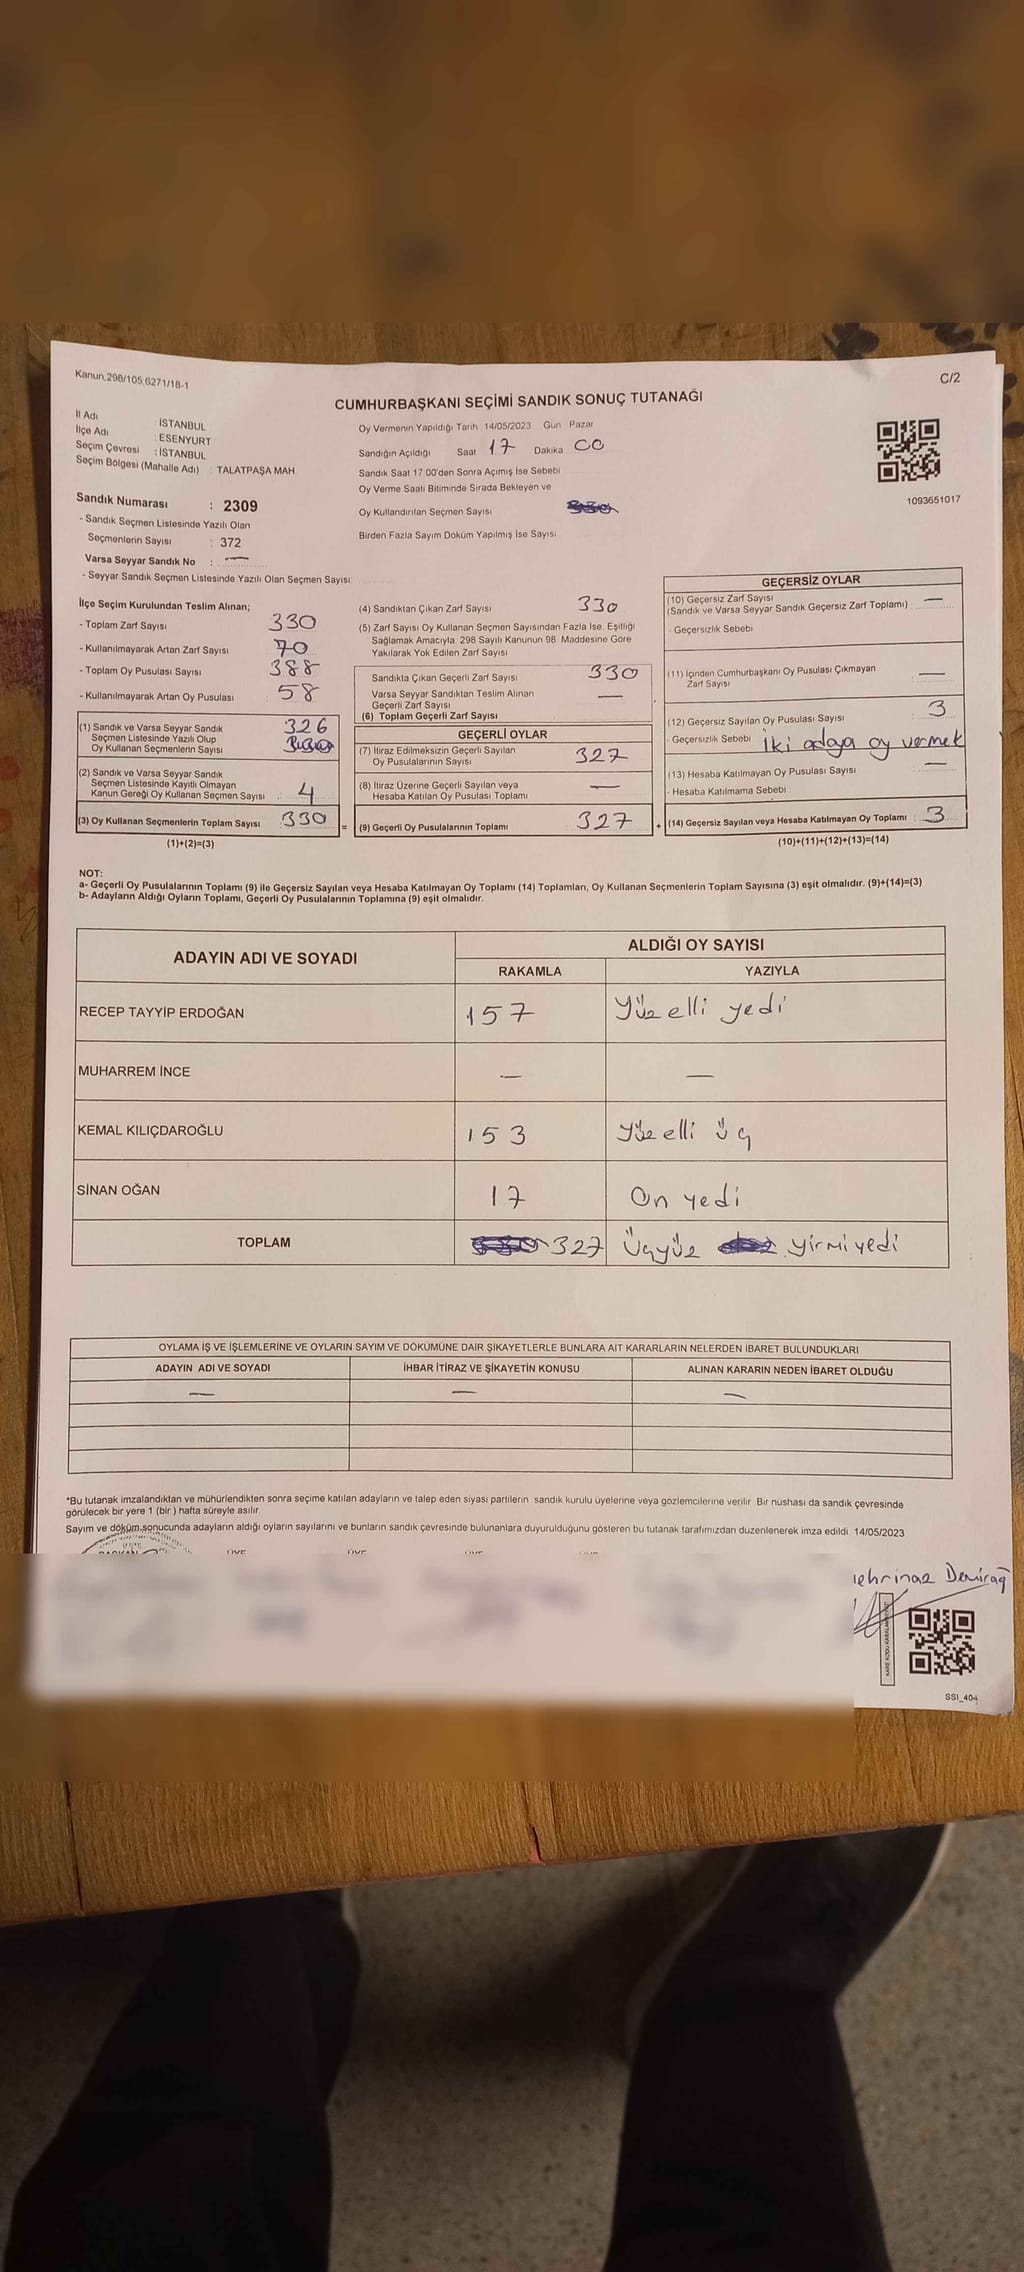 Kanun,298/105,6271/18-1
C/2
CUMHURBAŞKANI SEÇİMİ SANDIK SONUÇ TUTANAĞI
İl Adı : İSTANBUL
İlçe Adı : ESENYURT
Seçim Çevresi : İSTANBUL
Seçim Bölgesi (Mahalle Adı) : TALATPAŞA MAH
Sandık Numarası : 2309
- Sandık Seçmen Listesinde Yazılı Olan
Seçmenlerin Sayısı : 372
Varsa Seyyar Sandık No : —
- Seyyar Sandık Seçmen Listesinde Yazılı Olan Seçmen Sayısı
Oy Vermenin Yapıldığı Tarih 14/05/2023 Gün Pazar
Sandığın Açıldığı Saat 17 Dakika 00
Sandık Saat 17 00'den Sonra Açımış İse Sebebi
Oy Verme Saati Bitiminde Sırada Bekleyen ve
Oy Kullandırılan Seçmen Sayısı
Birden Fazla Sayım Döküm Yapılmış İse Sayısı
1093651017
İlçe Seçim Kurulundan Teslim Alınan;
- Toplam Zarf Sayısı 330
- Kullanılmayarak Artan Zarf Sayısı 70
- Toplam Oy Pusulası Sayısı 388
- Kullanılmayarak Artan Oy Pusulası 58
(1) Sandık ve Varsa Seyyar Sandık 326
Seçmen Listesinde Yazılı Olup
Oy Kullanan Seçmenlerin Sayısı
(2) Sandık ve Varsa Seyyar Sandık
Seçmen Listesinde Kayıtlı Olmayan
Kanun Gereği Oy Kullanan Seçmen Sayısı : 4
(3) Oy Kullanan Seçmenlerin Toplam Sayısı : 330
(1)+(2)=(3)
(4) Sandıktan Çıkan Zarf Sayısı 330
(5) Zarf Sayısı Oy Kullanan Seçmen Sayısından Fazla İse, Eşitliği
Sağlamak Amacıyla, 298 Sayılı Kanunun 98. Maddesine Göre
Yakılarak Yok Edilen Zarf Sayısı
Sandıkta Çıkan Geçerli Zarf Sayısı 330
Varsa Seyyar Sandıktan Teslim Alınan
Geçerli Zarf Sayısı —
(6) Toplam Geçerli Zarf Sayısı
GEÇERLİ OYLAR
(7) İtiraz Edilmeksizin Geçerli Sayılan
Oy Pusulalarının Sayısı 327
(8) İtiraz Üzerine Geçerli Sayılan veya
Hesaba Katılan Oy Pusulası Toplamı —
= (9) Geçerli Oy Pusulalarının Toplamı 327
GEÇERSİZ OYLAR
(10) Geçersiz Zarf Sayısı —
(Sandık ve Varsa Seyyar Sandık Geçersiz Zarf Toplamı) :
- Geçersizlik Sebebi
(11) İçinden Cumhurbaşkanı Oy Pusulası Çıkmayan —
Zarf Sayısı
(12) Geçersiz Sayılan Oy Pusulası Sayısı : 3
- Geçersizlik Sebebi İki adaya oy vermek
(13) Hesaba Katılmayan Oy Pusulası Sayısı —
- Hesaba Katılmama Sebebi
+ (14) Geçersiz Sayılan veya Hesaba Katılmayan Oy Toplamı : 3
(10)+(11)+(12)+(13)=(14)
NOT:
a- Geçerli Oy Pusulalarının Toplamı (9) ile Geçersiz Sayılan veya Hesaba Katılmayan Oy Toplamı (14) Toplamları, Oy Kullanan Seçmenlerin Toplam Sayısına (3) eşit olmalıdır. (9)+(14)=(3)
b- Adayların Aldığı Oyların Toplamı, Geçerli Oy Pusulalarının Toplamına (9) eşit olmalıdır.
ADAYIN ADI VE SOYADI
ALDIĞI OY SAYISI
RAKAMLA YAZIYLA
RECEP TAYYİP ERDOĞAN 157 Yüz elli yedi
MUHARREM İNCE — —
KEMAL KILIÇDAROĞLU 153 Yüz elli üç
SİNAN OĞAN 17 On yedi
TOPLAM 327 Üçyüz yirmi yedi
OYLAMA İŞ VE İŞLEMLERİNE VE OYLARIN SAYIM VE DÖKÜMÜNE DAİR ŞİKAYETLERLE BUNLARA AİT KARARLARIN NELERDEN İBARET BULUNDUKLARI
ADAYIN ADI VE SOYADI İHBAR İTİRAZ VE ŞİKAYETİN KONUSU ALINAN KARARIN NEDEN İBARET OLDUĞU
— — —
*Bu tutanak imzalandıktan ve mühürlendikten sonra seçime katılan adayların ve talep eden siyası partilerin sandık kurulu üyelerine veya gözlemcilerine verilir. Bir nüshası da sandık çevresinde
görülecek bir yere 1 (bir ) hafta süreyle asılır.
Sayım ve döküm sonucunda adayların aldığı oyların sayılarını ve bunların sandık çevresinde bulunanlara duyurulduğunu gösteren bu tutanak tarafımızdan düzenlenerek imza edildi. 14/05/2023
Demirağ
SSI_404